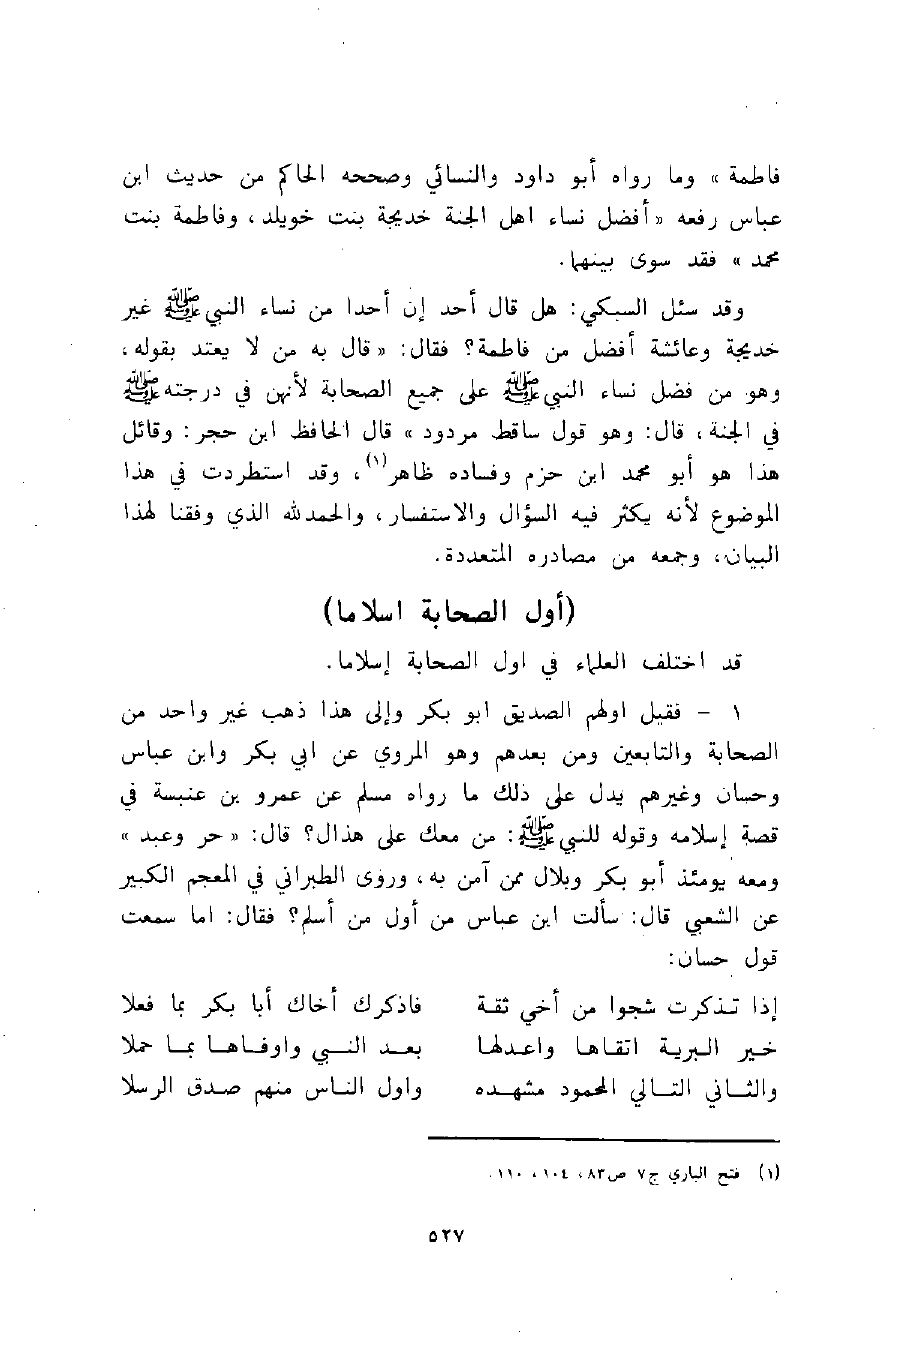 فاطمة » وما رواه أبو داود والنسائي وصححه الحاكم من حديث ابن
عباس رفعه «أفضل نساء اهل الجنة خديجة بنت خويلد ، وفاطمة بنت
محمد » فقد سوى بينهما .
وقد سئل السبكي : هل قال أحد إن أحدا من نساء النبي ﷺ غير
خديجة وعائشة أفضل من فاطمة؟ فقال: «قال به من لا يعتد بقوله ،
وهو من فضل نساء النبي ﷺ على جميع الصحابة لأنهن في درجته ﷺ
في الجنة ، قال: وهو قول ساقط مردود » قال الحافظ ابن حجر : وقائل
هذا هو أبو محمد ابن حزم وفساده ظاهر(١) ، وقد استطردت في هذا
الموضوع لأنه يكثر فيه السؤال والاستفسار ، والحمدلله الذي وفقنا لهذا
البيان ، وجمعه من مصادره المتعددة .
(أول الصحابة اسلاما)
قد اختلف العلماء في اول الصحابة إسلاما .
١ - فقيل اولهم الصديق ابو بكر وإلى هذا ذهب غير واحد من
الصحابة والتابعين ومن بعدهم وهو المروي عن ابي بكر وابن عباس
وحسان وغيرهم يدل على ذلك ما رواه مسلم عن عمرو بن عنبسة في
قصة إسلامه وقوله للنبي ﷺ : من معك على هذال؟ قال: « حر وعبد »
ومعه يومئذ أبو بكر وبلال ممن آمن به ، وروى الطبراني في المعجم الكبير
عن الشعبي قال: سألت ابن عباس من أول من أسلم؟ فقال: اما سمعت
قول حسان:
إذا تذكرت شجوا من أخي ثقة فاذكرك أخاك أبا بكر بما فعلا
خير البرية اتقاها واعدلها بعد النبي واوفاها بما حملا
والثاني التالي المحمود مشهده واول الناس منهم صدق الرسلا
(١) فتح الباري ج٧ ص٨٣ ، ١٠٤ ، ١١٠ .
٥٢٧